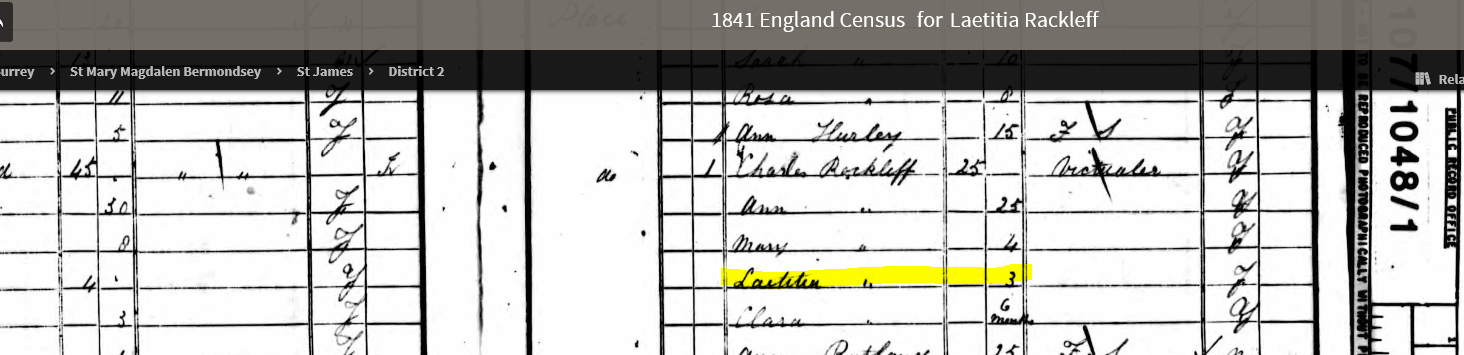 Place
1841 England Census for Laetitia Rackleff
urrey > St Mary Magdalen Bermondsey > St James > District 2
Rela
Sarah " 10
11 Rosa " 8
5 y Ann Hurley 15 F S y
45 " " do 1 Charles Rockleff 25 Victualer y
30 y Ann " 25 y
8 y Mary " 4 y
4 y Laetitia " 3 y
3 y Clara " 6 Months y
25 F S
107/1048/1
PUBLIC RECORD OFFICE
TO BE REPRODUCED PHOTOGRAPHICALLY WITHOUT